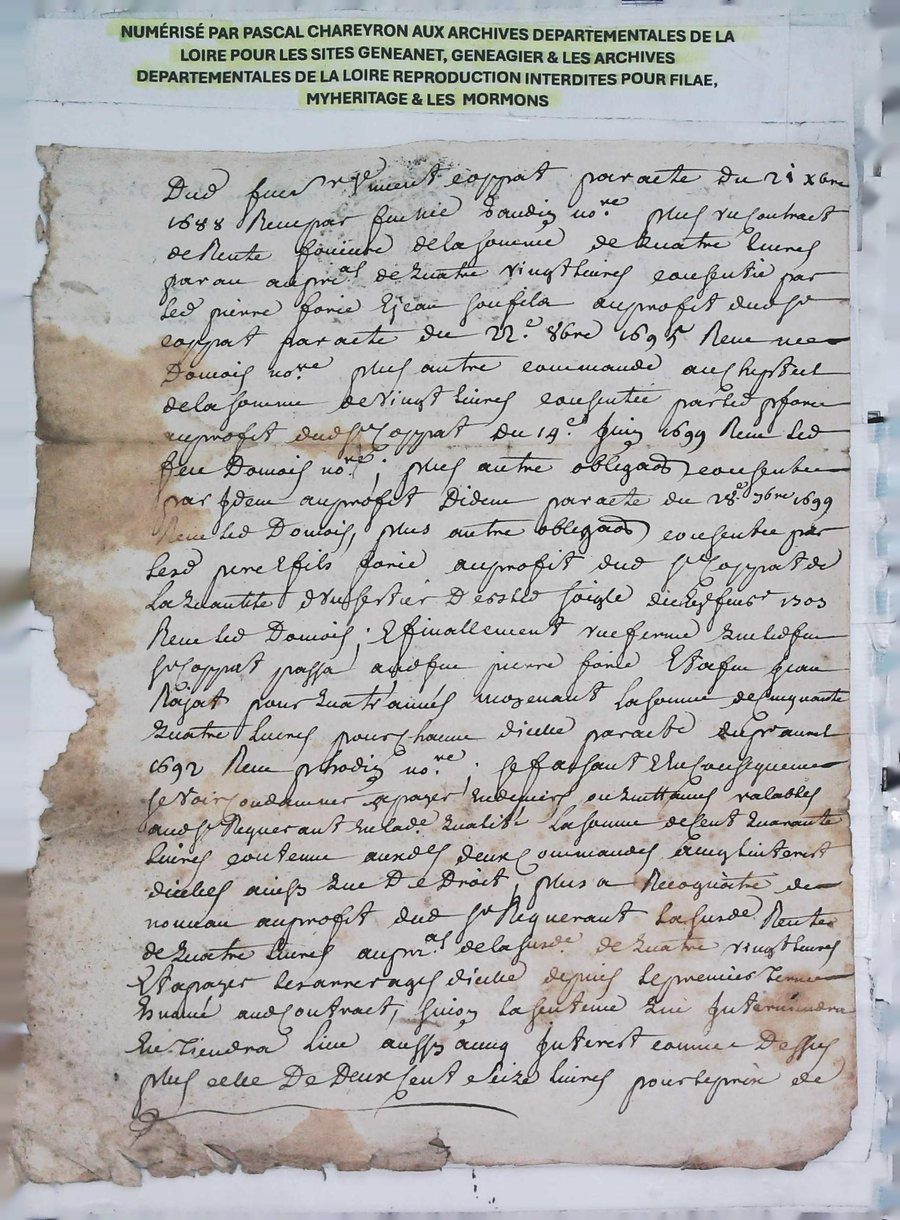 NUMÉRISÉ PAR PASCAL CHAREYRON AUX ARCHIVES DEPARTEMENTALES DE LA
LOIRE POUR LES SITES GENEANET, GENEAGIER & LES ARCHIVES
DEPARTEMENTALES DE LA LOIRE REPRODUCTION INTERDITES POUR FILAE,
MYHERITAGE & LES MORMONS
Dud feu Sr coppat par acte du 21 xbre
1688 Receu par nore plus un contract
de Rente fonciere de la somme de quatre livres
par an au pnal de quatre vingt livres consentie par
led pierre forie et jean son fils au profit dud sr
coppat par acte du 22e 8bre 1695 Receu me
Domois nore plus autre commande
de la somme de vingt livres consentie par led forie
au profit dud Sr Coppat du 14e Juin 1699 Receu led
feu Domois nore ; plus autre obligaon consentie
par Idem au profit Didem par acte du 28e 1699
Receu led Domois, plus autre obligaon consentie par
lesd pere & fils forie au profit dud Sr Coppat de
La quantité d'un sestier bled soigle du 1703
Receu led Domois ; & finallement une ferme que led feu
Sr Coppat passa aud feu pierre forie Et a feu jean
pour quatre années moyenant la somme de cinquante
quatre Livres pour chacune dicelle par acte du pr avril
1692 Receu nore ; se faisant & en consequence
se voir condamner a payer en deniers ou quittances valables
aud Sr Requerant en lade qualité La somme de cent quarante
livres contenue auxdes deux Commandes & aux interest
dicelles ainsy que De Droit, plus a Recognoitre de
nouveau au profit dud Sr Requerant La susde Rente
de quatre Livres au pnal de la susde de quatre vingt livres
Et a payer les arrerages dicelle depuis le premier terme
aud Contract, suivant la sentence qui Interviendra
En Tiendra Lieu aussy avec Interest comme Dessus
plus celle De Deux Cent & seize livres pour le prix de